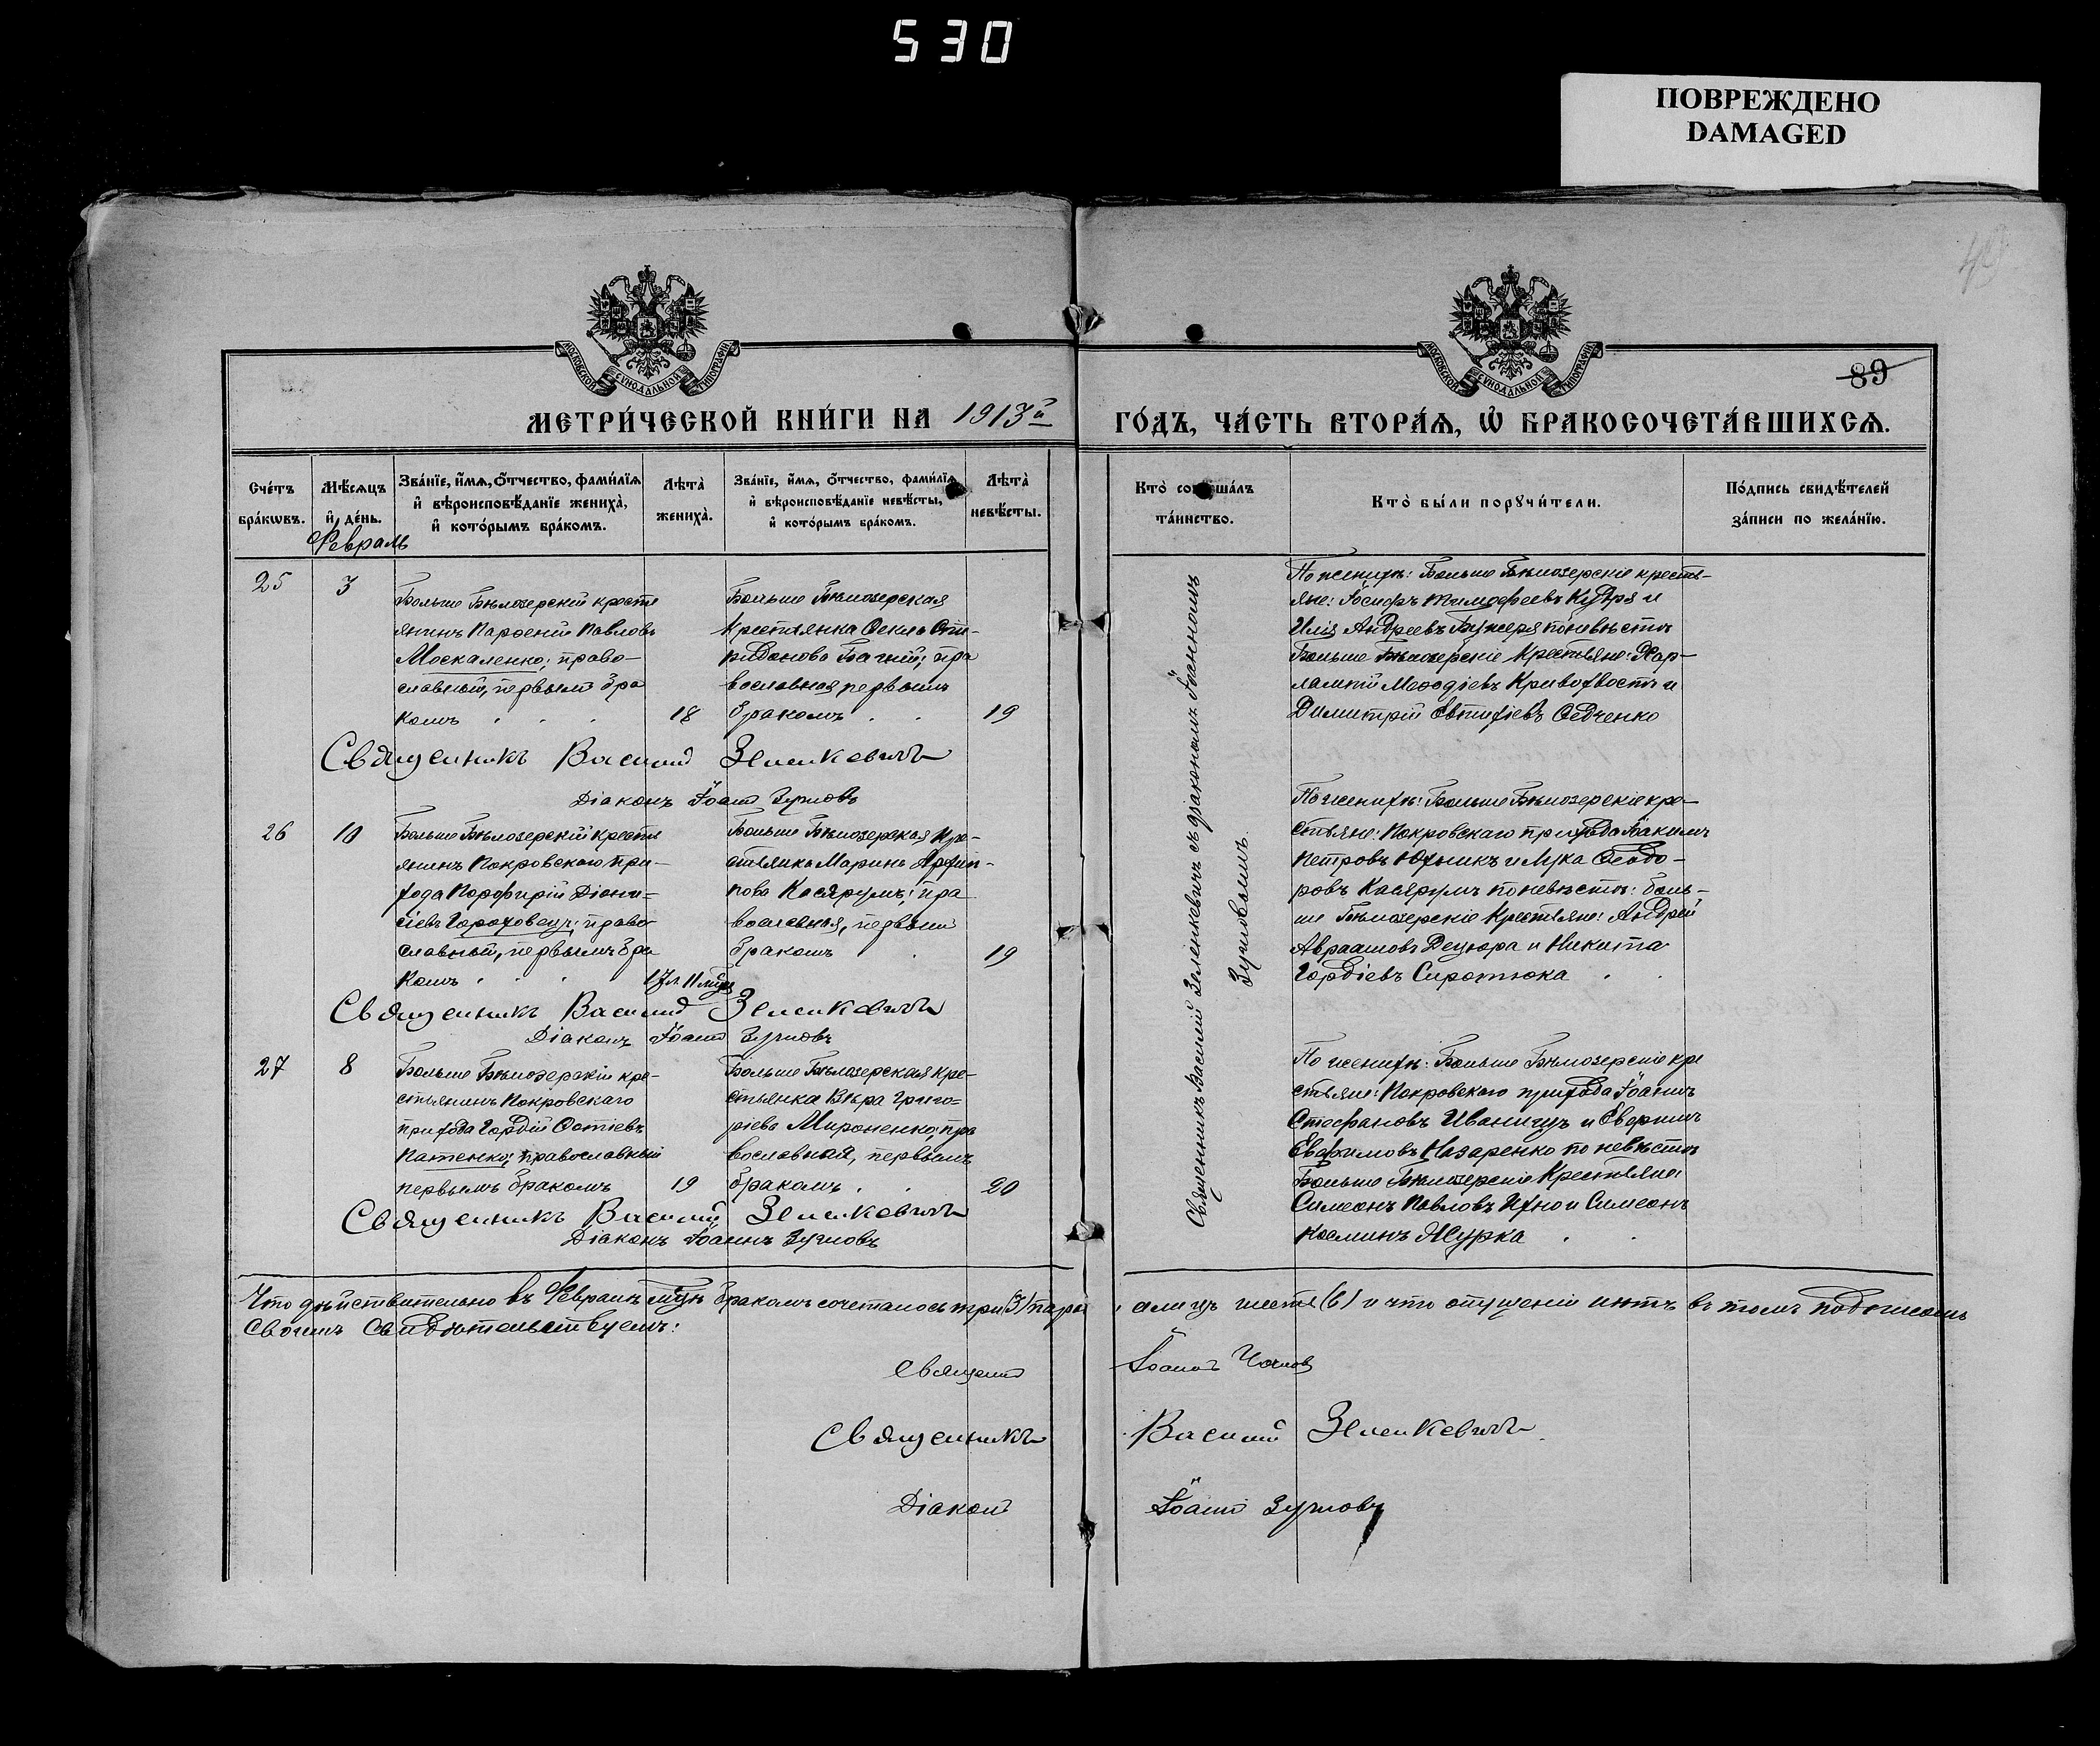 530
ПОВРЕЖДЕНО
DAMAGED
МОСКОВСКОЙ СѴНОДАЛЬНОЙ ТИПОГРАФІИ
МОСКОВСКОЙ СѴНОДАЛЬНОЙ ТИПОГРАФІИ
89
МЕТРИ́ЧЕСКОЙ КНИ́ГИ НА 1913й
ГО́ДЪ, ЧА́СТЬ ВТОРА́Я, Ѡ҆ БРАКОСОЧЕТА́ВШИХСЯ.
Сче́тъ бра́кѡвъ.
Мѣ́сяцъ и҆ де́нь.
Зва́нїе, и҆́мя, ѻ҆́тчество, фами́лїя и҆ вѣроисповѣ́данїе жениха̀, и҆ кото́рымъ бра́комъ.
Лѣта̀ жениха̀.
Зва́нїе, и҆́мя, ѻ҆́тчество, фами́лїя и҆ вѣроисповѣ́данїе невѣ́сты, и҆ кото́рымъ бра́комъ.
Лѣта̀ невѣ́сты.
Кто̀ соверша́лъ та́инство.
Кто̀ бы́ли порꙋчи́тели.
По́дпись свидѣ́телей за́писи по жела́нїю.
Февраль
25
3
Больше Бѣлозерскій крестья
янинъ Парѳеній Павловъ
Москаленко; право-
славный, первымъ бра
комъ
18
Больше Бѣлозерская
крестьянка Ѳекла Спи-
ридонова; пра
вославная первымъ
бракомъ
19
По женихѣ: Больше Бѣлозерскіе кресть-
яне: Іосифъ Тимофеевъ Кудря и
Илія Андреевъ по невѣстѣ
Больше Бѣлозерскіе крестьяне: Хар-
лампій Меѳодіевъ Кривохвостъ и
Димитрій Евтихіевъ Федченко
Священникъ Василій Зеленкевичъ
Діаконъ Іоаннъ
26
10
Больше Бѣлозерскій кресть
янинъ Покровскаго при-
хода Порфирій Діони-
сіевъ Гороховецъ; право
славный, первымъ бра
комъ
17 л. 11 мцъ
Больше Бѣлозерская кре-
стьянка Марина
Касярумъ; пра
вославная, первымъ
бракомъ
19
По женихѣ: Больше Бѣлозерскіе кре-
стьяне: Покровскаго прихода Іакимъ
Петровъ и Лука Ѳеодо-
ровъ Касярумъ по невѣстѣ: Боль-
ше Бѣлозерскіе крестьяне: Андрей
Авраамовъ Децюра и Никита
Гордіевъ Сиротюка
Священникъ Василій Зеленкевичъ
Діаконъ Іоаннъ
27
8
Больше Бѣлозерскій кре-
стьянинъ Покровскаго
прихода Гордій
Патенко; православный
первымъ бракомъ
19
Больше Бѣлозерская кре-
стьянка Вѣра Григо-
ріева Мироненко, пра
вославная, первымъ
бракомъ
20
По женихѣ: Больше Бѣлозерскіе кре
стьяне: Покровскаго прихода Іоаннъ
Стефановъ Иваницъ и
Евфимовъ Назаренко по невѣстѣ
Больше Бѣлозерскіе крестьяне:
Симеонъ Павловъ и Симеонъ
Косминъ Журка
Священникъ Василій Зеленкевичъ
Діаконъ Іоаннъ
Священникъ Василій Зеленкевичъ съ діакономъ Іоанномъ
Что дѣйствительно въ Февралѣ мцѣ бракомъ сочеталось три (3) пары, а лицъ шесть (6) и что опущеній нѣтъ въ томъ подписомъ
своимъ свидѣтельствуемъ:
Священникъ Іоаннъ
Священникъ Василій Зеленкевичъ
Діаконъ Іоаннъ